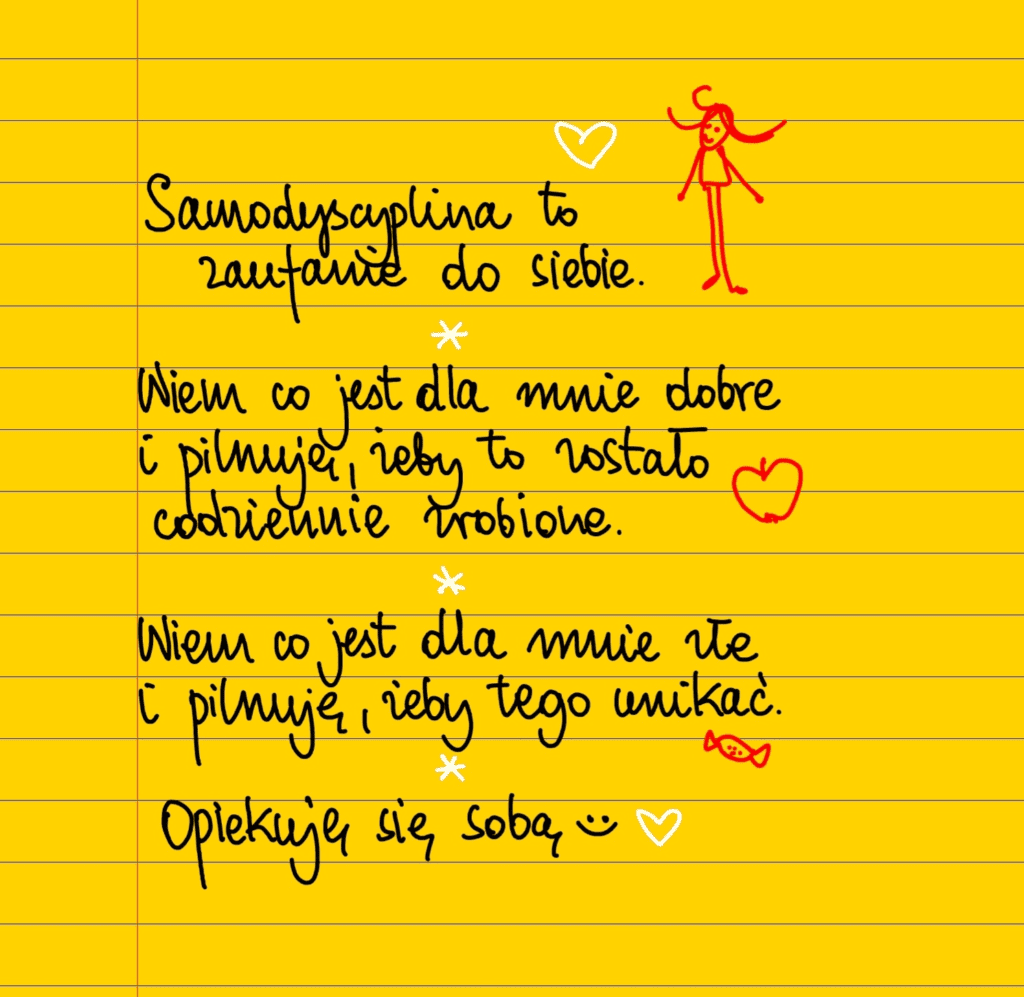 Samodyscyplina to
zaufanie do siebie.
*
Wiem co jest dla mnie dobre
i pilnuję, żeby to zostało
codziennie zrobione.
*
Wiem co jest dla mnie złe
i pilnuję, żeby tego unikać.
*
Opiekuję się sobą